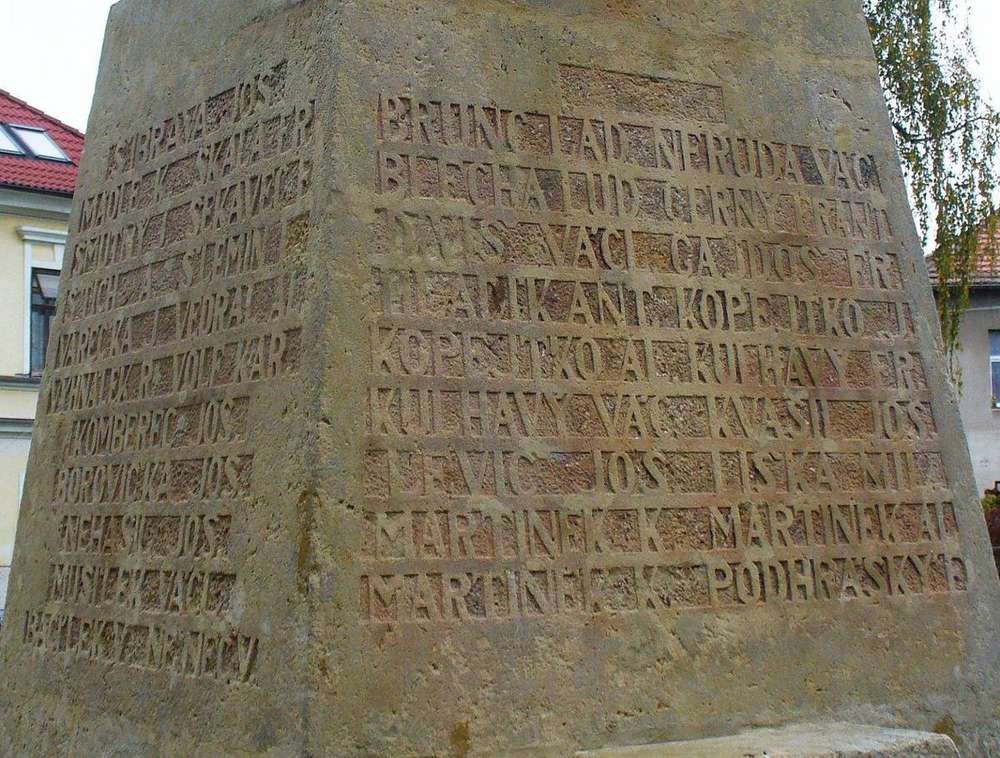 SÍBRAVA JOS.
SKALA FR.
SEKAVEC F.
SLEMÍN
VEDRAL AL.
VOLF KAR.
KOMBEREC JOS.
BOROVIČKA JOS.
NEHASIL JOS.
MUSÍLEK VÁCL.
NĚMEC V.
BRUNCLAD. NERUDA VÁCL
BLECHA LUD. ČERNÝ FRANT
VÁCL. GAJDOŠ FR.
HLAČÍK ANT. KOPEJTKO J.
KOPEJTKO AL. KULHAVÝ FR.
KULHAVÝ VÁC. KVASIL JOS.
LEVIC JOS. LIŠKA MIL.
MARTÍNEK K. MARTÍNEK AL.
MARTÍNEK K. PODHRÁSKÝ F.